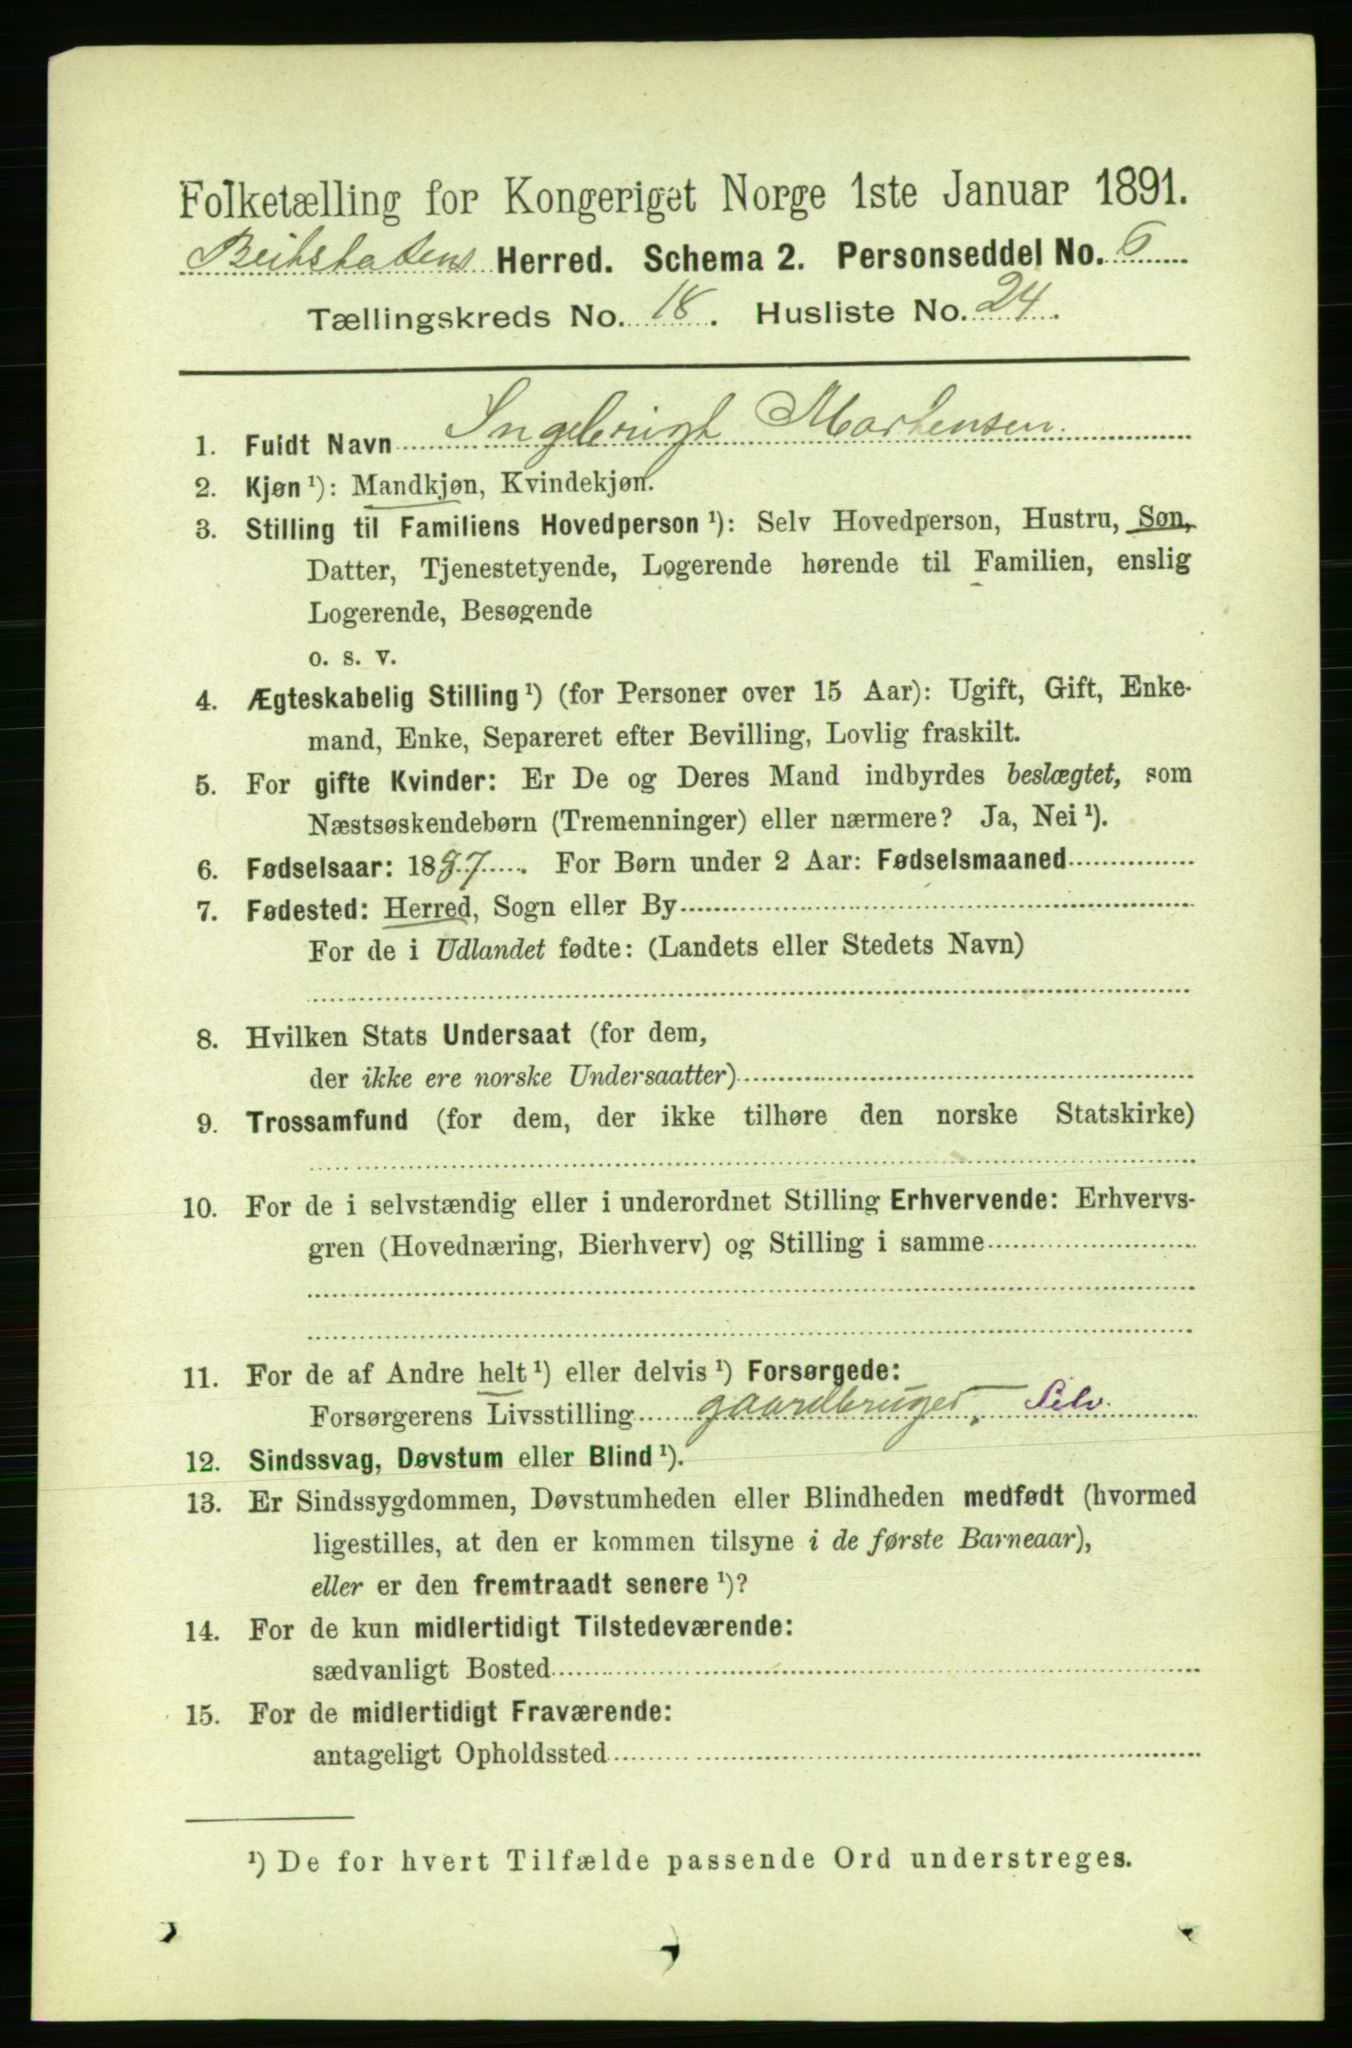 Folketælling for Kongeriget Norge 1ste Januar 1891.
Beitstadens Herred. Schema 2. Personseddel No. 6
Tællingskreds No. 18. Husliste No. 24.
1. Fuldt Navn Ingebrigt Martensen.
2. Kjøn ¹): Mandkjøn, Kvindekjøn.
3. Stilling til Familiens Hovedperson ¹): Selv Hovedperson, Hustru, Søn,
Datter, Tjenestetyende, Logerende hørende til Familien, enslig
Logerende, Besøgende
o. s. v.
4. Ægteskabelig Stilling ¹) (for Personer over 15 Aar): Ugift, Gift, Enke-
mand, Enke, Separeret efter Bevilling, Lovlig fraskilt.
5. For gifte Kvinder: Er De og Deres Mand indbyrdes beslægtet, som
Næstsøskendebørn (Tremenninger) eller nærmere? Ja, Nei ¹).
6. Fødselsaar: 1887. For Børn under 2 Aar: Fødselsmaaned
7. Fødested: Herred, Sogn eller By
For de i Udlandet fødte: (Landets eller Stedets Navn)
8. Hvilken Stats Undersaat (for dem,
der ikke ere norske Undersaatter)
9. Trossamfund (for dem, der ikke tilhøre den norske Statskirke)
10. For de i selvstændig eller i underordnet Stilling Erhvervende: Erhvervs-
gren (Hovednæring, Bierhverv) og Stilling i samme
11. For de af Andre helt ¹) eller delvis ¹) Forsørgede:
Forsørgerens Livsstilling gaardbruger, Selv.
12. Sindssvag, Døvstum eller Blind ¹).
13. Er Sindssygdommen, Døvstumheden eller Blindheden medfødt (hvormed
ligestilles, at den er kommen tilsyne i de første Barneaar),
eller er den fremtraadt senere ¹)?
14. For de kun midlertidigt Tilstedeværende:
sædvanligt Bosted
15. For de midlertidigt Fraværende:
antageligt Opholdssted
¹) De for hvert Tilfælde passende Ord understreges.